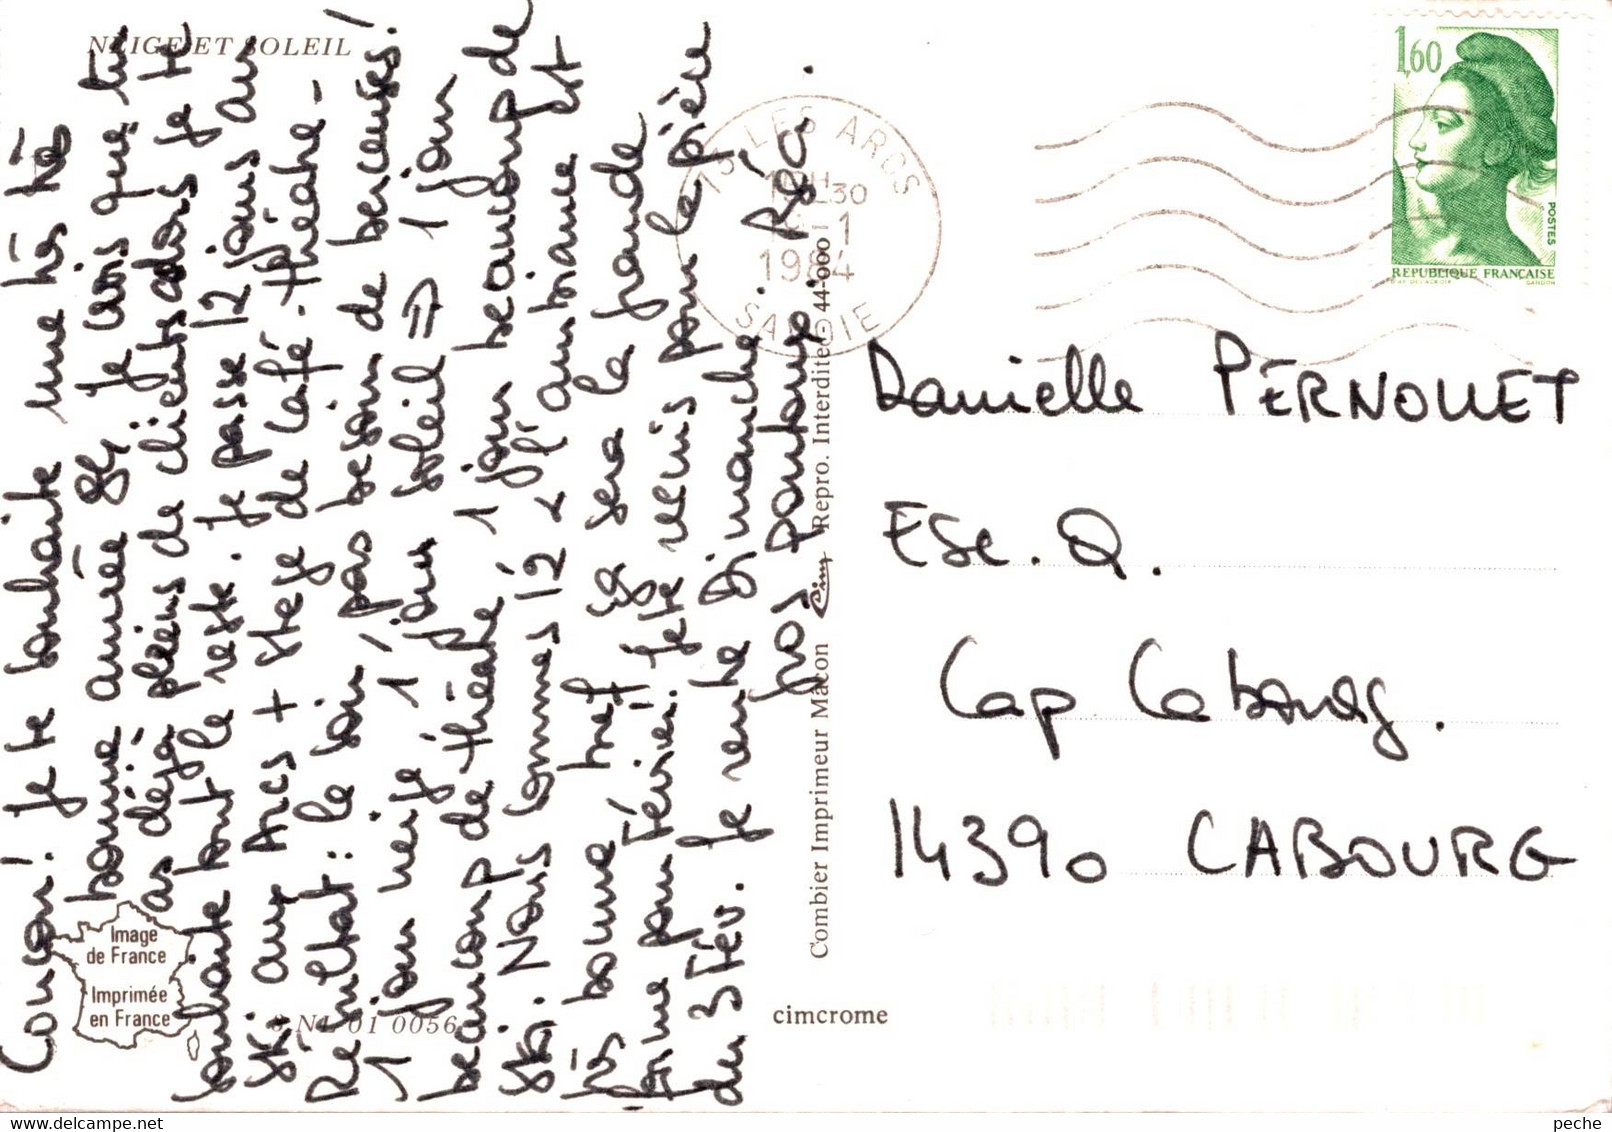 NEIGE ET SOLEIL
Coucou! Je te souhaite une très très
bonne année 84, Je crois que tu
as déjà pleins de clients alors je te
souhaite tout le reste. Je passe 12 jours au
ski aux Arcs + stage de café-théâtre -
Résultat: le soir, pas besoin de berceuses!
1 jour neige, 1 jour soleil ⇒ 1 jour
beaucoup de théâtre, 1 jour beaucoup de
ski. Nous sommes 12 & l'ambiance est
très bonne bref ça sera la grande
forme pour Février! Je te revois pour le
du 3 Fév. Je rentre Dimanche.
Gros
Image
de France
Imprimée
en France
NL 01 0056
cimcrome
Combier Imprimeur Mâcon Cim Repro. Interdite - 44-000
73 LES ARCS
30
1
1984
SAVOIE
1,60
POSTES
REPUBLIQUE FRANÇAISE
GANDON
Danielle PÉRNOUET
Esc. Q.
Cap Cabourg.
14390 CABOURG
peche